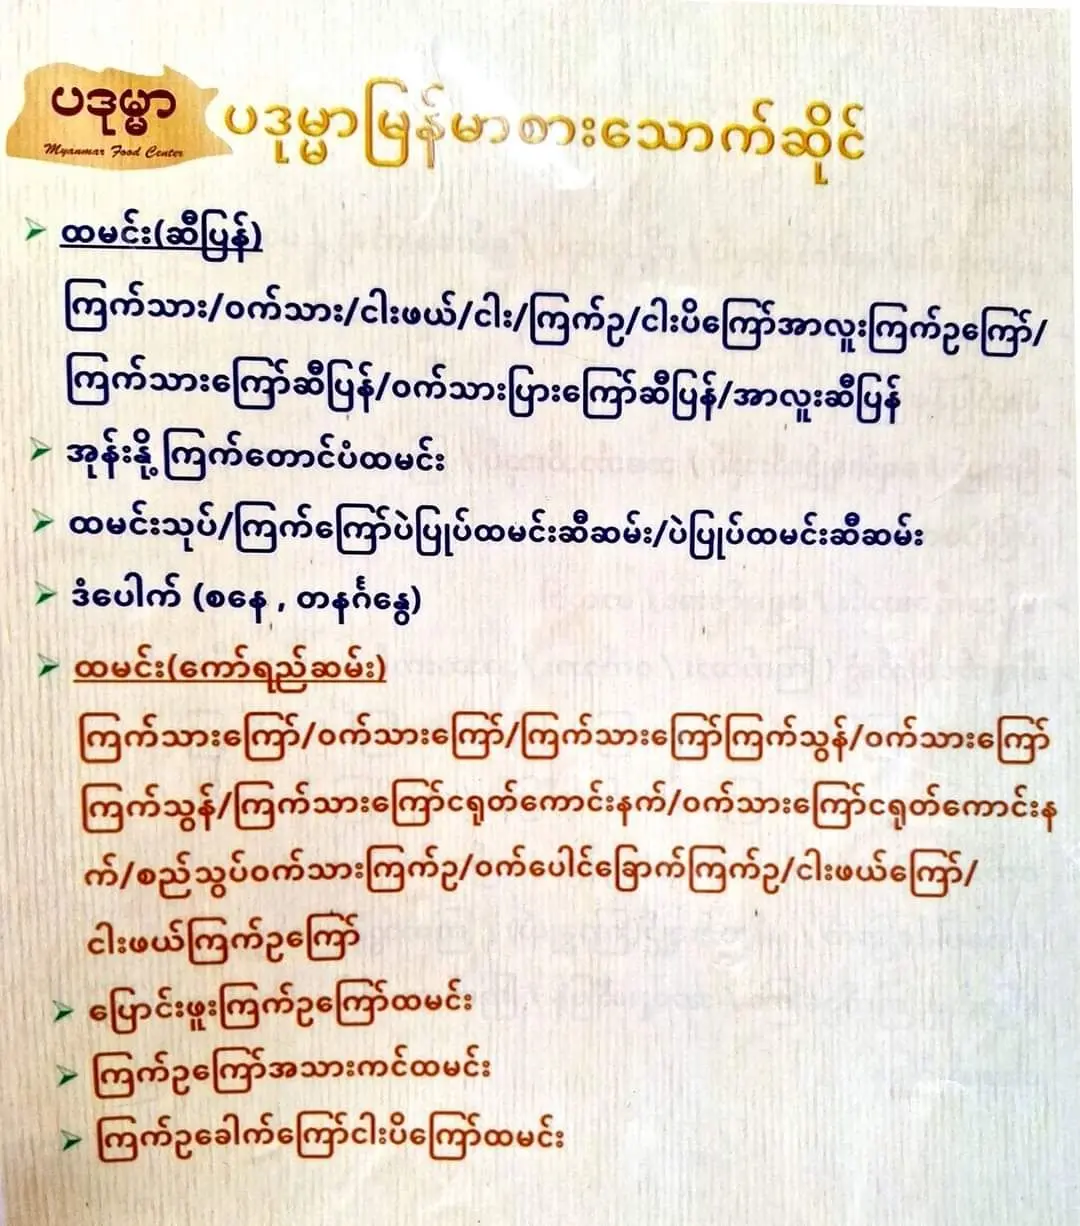 ပဒုမ္မာ
Myanmar Food Center
ပဒုမ္မာမြန်မာစားသောက်ဆိုင်
ထမင်း(ဆီပြန်)
ကြက်သား/ဝက်သား/ငါးဖယ်/ငါး/ကြက်ဥ/ငါးပိကြော်အာလူးကြက်ဥကြော်/
ကြက်သားကြော်ဆီပြန်/ဝက်သားပြားကြော်ဆီပြန်/အာလူးဆီပြန်
အုန်းနို့ကြက်တောင်ပံထမင်း
ထမင်းသုပ်/ကြက်ကြော်ပဲပြုပ်ထမင်းဆီဆမ်း/ပဲပြုပ်ထမင်းဆီဆမ်း
ဒံပေါက် (စနေ , တနင်္ဂနွေ)
ထမင်း(ကော်ရည်ဆမ်း)
ကြက်သားကြော်/ဝက်သားကြော်/ကြက်သားကြော်ကြက်သွန်/ဝက်သားကြော်
ကြက်သွန်/ကြက်သားကြော်ငရုတ်ကောင်းနက်/ဝက်သားကြော်ငရုတ်ကောင်းန
က်/စည်သွပ်ဝက်သားကြက်ဥ/ဝက်ပေါင်ခြောက်ကြက်ဥ/ငါးဖယ်ကြော်/
ငါးဖယ်ကြက်ဥကြော်
ပြောင်းဖူးကြက်ဥကြော်ထမင်း
ကြက်ဥကြော်အသားကင်ထမင်း
ကြက်ဥခေါက်ကြော်ငါးပိကြော်ထမင်း